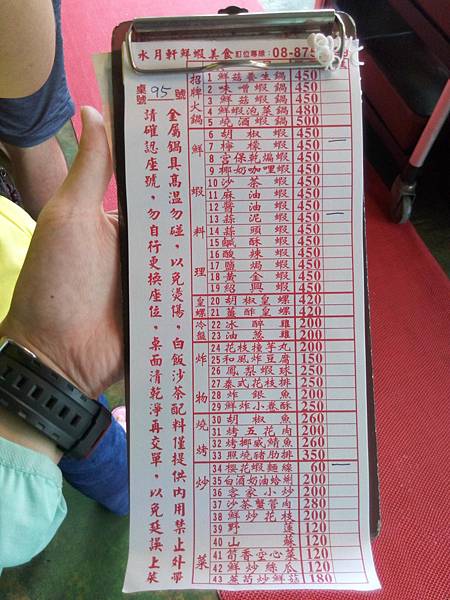 水月軒鮮蝦美食 訂位專線：08-875
桌號 95 號
金屬鍋具高溫勿碰，以免燙傷，白飯沙茶配料僅提供內用禁止外帶
請確認座號，勿自行更換座位，桌面清乾淨再交單，以免延誤上菜
招牌火鍋
1 鮮菇養生鍋 450
2 味噌蝦鍋 450
3 鮮菇蝦鍋 450
4 鮮蝦泡菜鍋 480
5 燒酒蝦鍋 500
鮮蝦料理
6 胡椒蝦 450
7 檸檬蝦 450 一
8 宮保乾煸蝦 450
9 椰奶咖哩蝦 450
10 沙茶蝦 450
11 麻油蝦 450
12 醬油蝦 450
13 蒜泥蝦 450 一
14 蒜頭蝦 450
15 鹹酥蝦 450
16 酸辣蝦 450
17 鹽焗蝦 450
18 黃金蝦 450
19 紹興蝦 450
皇螺
20 胡椒皇螺 420
21 薑酢皇螺 420
冷盤
22 冰醉雞 200
23 油蔥雞 200
炸物
24 花枝捶芋丸 200
25 和風炸豆腐 150
26 鳳梨蝦球 250
27 泰式花枝排 250
28 炸銀魚 200
29 鮮炸小卷酥 250
燒烤
30 胡椒魚 260
31 烤五花肉 200
32 烤挪威鯖魚 260
33 照燒豬肋排 350
炒菜
34 櫻花蝦麵線 60 一
35 白酒奶油蛤蜊 200
36 客家小炒 200
37 沙茶蟹管肉 280
38 鮮炒花枝 200
39 野蓮 120
40 山蘇 120
41 筍香空心菜 120
42 鮮炒絲瓜 120
43 蘆筍炒鮮菇 180